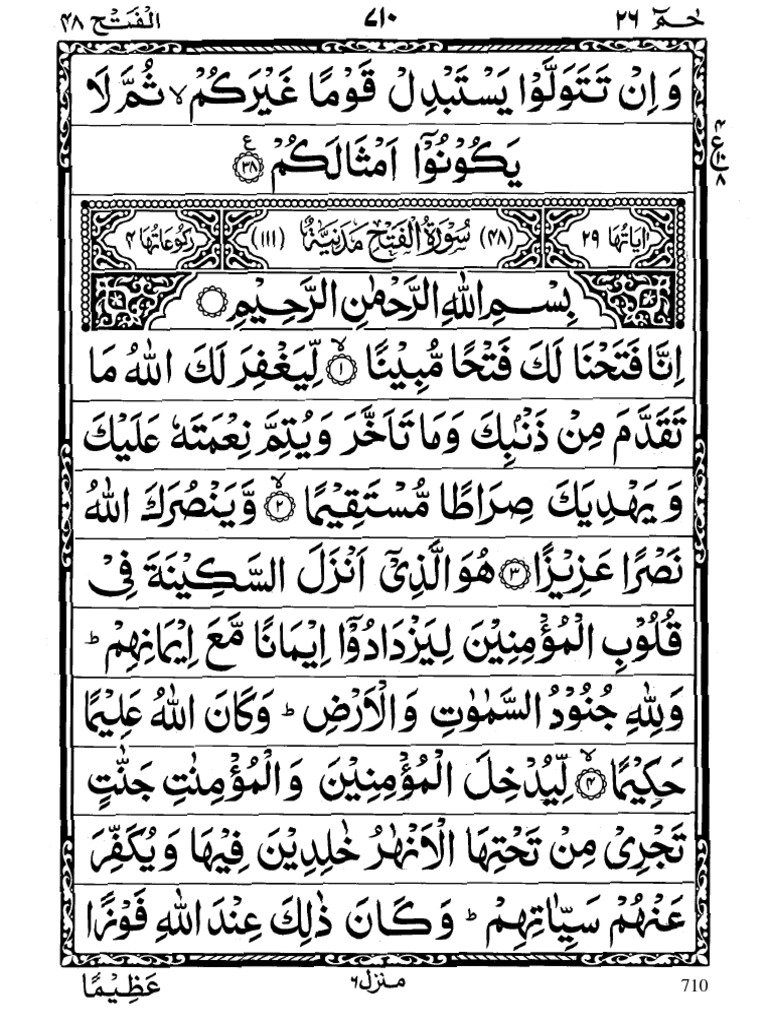 حٰمٓ ٢٦ ٧١٠ الْفَتْح ٤٨
وَ اِنْ تَتَوَلَّوْا يَسْتَبْدِلْ قَوْمًا غَيْرَكُمْ ۙ ثُمَّ لَا
يَكُوْنُوْٓا اَمْثَالَكُمْ ﴿٣٨﴾ ع
٤ ع ٨
اٰيَاتُهَا ٢٩ (٤٨) سُوْرَةُ الْفَتْحِ مَدَنِيَّةٌ (١١١) رُكُوْعَاتُهَا ٤
بِسْمِ اللّٰهِ الرَّحْمٰنِ الرَّحِيْمِ
اِنَّا فَتَحْنَا لَكَ فَتْحًا مُّبِيْنًا ﴿١﴾ ۙ لِّيَغْفِرَ لَكَ اللّٰهُ مَا
تَقَدَّمَ مِنْ ذَنْۢبِكَ وَمَا تَاَخَّرَ وَيُتِمَّ نِعْمَتَهٗ عَلَيْكَ
وَ يَهْدِيَكَ صِرَاطًا مُّسْتَقِيْمًا ﴿٢﴾ ۙ وَّ يَنْصُرَكَ اللّٰهُ
نَصْرًا عَزِيْزًا ﴿٣﴾ هُوَ الَّذِيْٓ اَنْزَلَ السَّكِيْنَةَ فِيْ
قُلُوْبِ الْمُؤْمِنِيْنَ لِيَزْدَادُوْٓا اِيْمَانًا مَّعَ اِيْمَانِهِمْ ؕ
وَلِلّٰهِ جُنُوْدُ السَّمٰوٰتِ وَ الْاَرْضِ ؕ وَ كَانَ اللّٰهُ عَلِيْمًا
حَكِيْمًا ﴿٤﴾ ۙ لِّيُدْخِلَ الْمُؤْمِنِيْنَ وَ الْمُؤْمِنٰتِ جَنّٰتٍ
تَجْرِيْ مِنْ تَحْتِهَا الْاَنْهٰرُ خٰلِدِيْنَ فِيْهَا وَ يُكَفِّرَ
عَنْهُمْ سَيِّاٰتِهِمْ ؕ وَ كَانَ ذٰلِكَ عِنْدَ اللّٰهِ فَوْزًا
عَظِيْمًا
منزل ٦
710